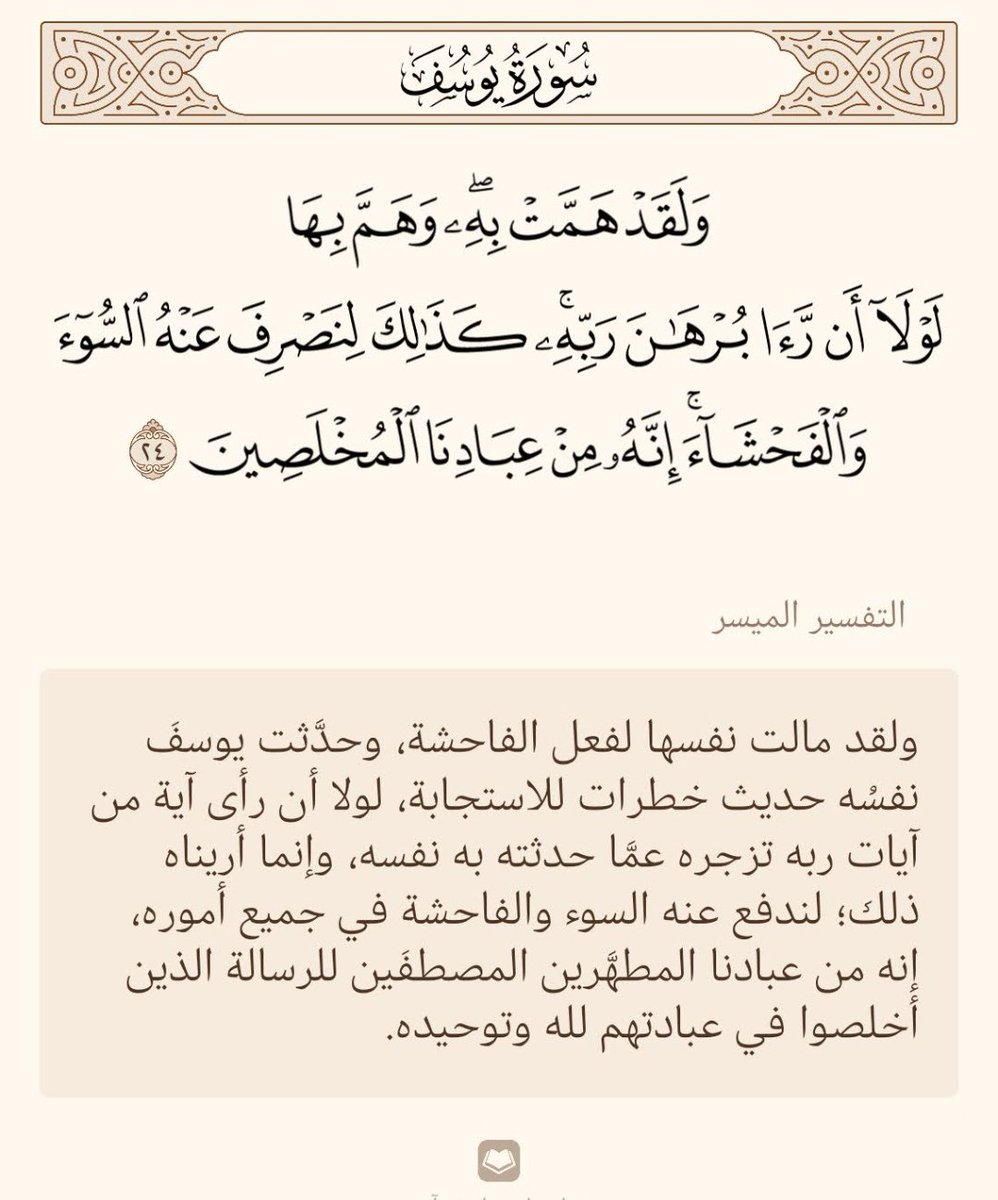 سُورَةُ يُوسُفَ
وَلَقَدۡ هَمَّتۡ بِهِۦۖ وَهَمَّ بِهَا
لَوۡلَآ أَن رَّءَا بُرۡهَٰنَ رَبِّهِۦۚ كَذَٰلِكَ لِنَصۡرِفَ عَنۡهُ ٱلسُّوٓءَ
وَٱلۡفَحۡشَآءَۚ إِنَّهُۥ مِنۡ عِبَادِنَا ٱلۡمُخۡلَصِينَ ٢٤
التفسير الميسر
ولقد مالت نفسها لفعل الفاحشة، وحدَّثت يوسفَ
نفسُه حديث خطرات للاستجابة، لولا أن رأى آية من
آيات ربه تزجره عمَّا حدثته به نفسه، وإنما أريناه
ذلك؛ لندفع عنه السوء والفاحشة في جميع أموره،
إنه من عبادنا المطهَّرين المصطفَين للرسالة الذين
أخلصوا في عبادتهم لله وتوحيده.